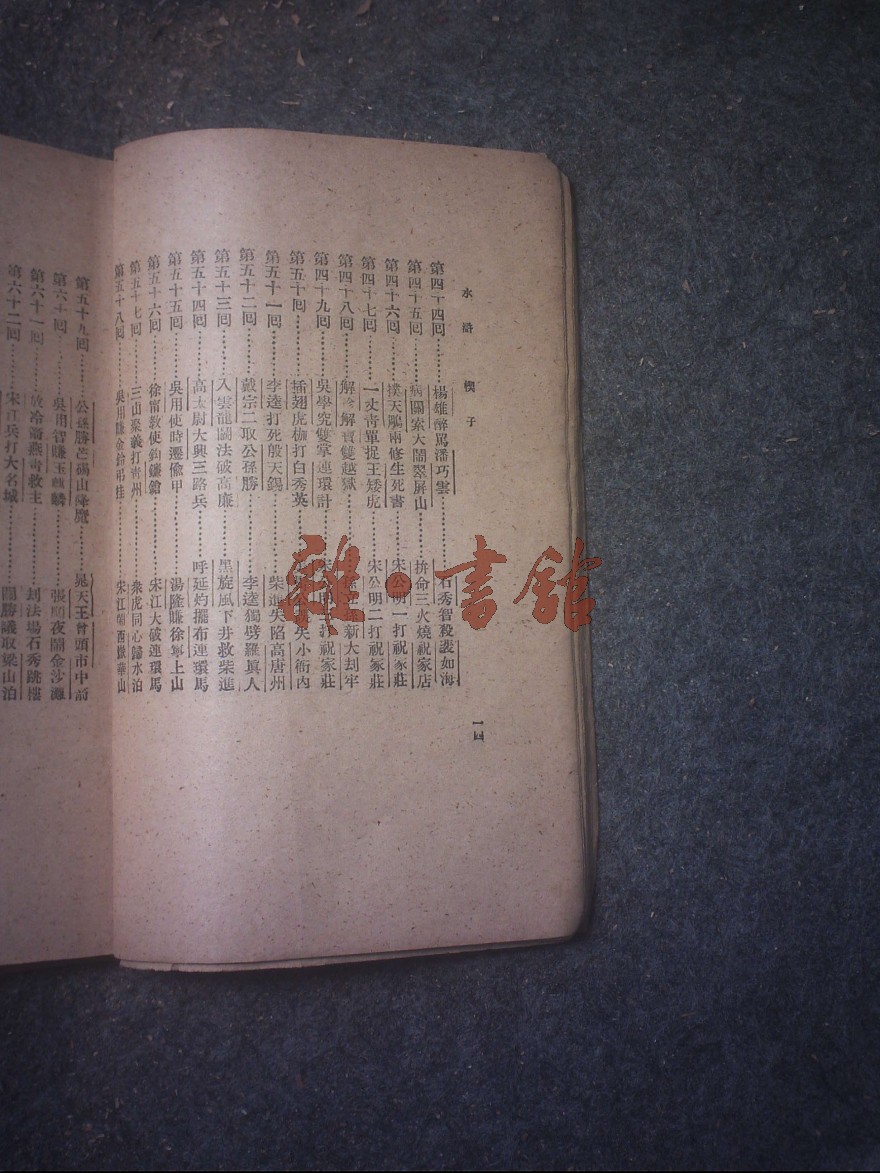 水滸　楔子
第四十四回………楊雄醉罵潘巧雲………石秀智殺裴如海
第四十五回………病關索大鬧翠屏山………拚命三火燒祝家店
第四十六回………撲天鵰兩修生死書………宋公明一打祝家莊
第四十七回………一丈青單捉王矮虎………宋公明二打祝家莊
第四十八回………解珍解寶雙越獄………新大刦牢
第四十九回………吳學究雙掌連環計………宋打祝家莊
第五十回………插翅虎枷打白秀英………失小衙內
第五十一回………李逵打死殷天錫………柴進失陷高唐州
第五十二回………戴宗二取公孫勝………李逵獨劈羅眞人
第五十三回………入雲龍鬭法破高廉………黑旋風下井救柴進
第五十四回………高太尉大興三路兵………呼延灼擺布連環馬
第五十五回………吳用使時遷偷甲………湯隆賺徐寧上山
第五十六回………徐甯教使鈎鐮鎗………宋江大破連環馬
第五十七回………三山聚義打青州………衆虎同心歸水泊
第五十八回………吳用賺金鈴吊挂………宋江鬧西嶽華山
一四
第五十九回………公孫勝芒碭山降魔………晁天王曾頭市中箭
第六十回………吳用智賺玉麒麟………張順夜鬧金沙灘
第六十一回………放冷箭燕青救主………刦法場石秀跳樓
第六十二回………宋江兵打大名城………關勝議取梁山泊
雜·書館